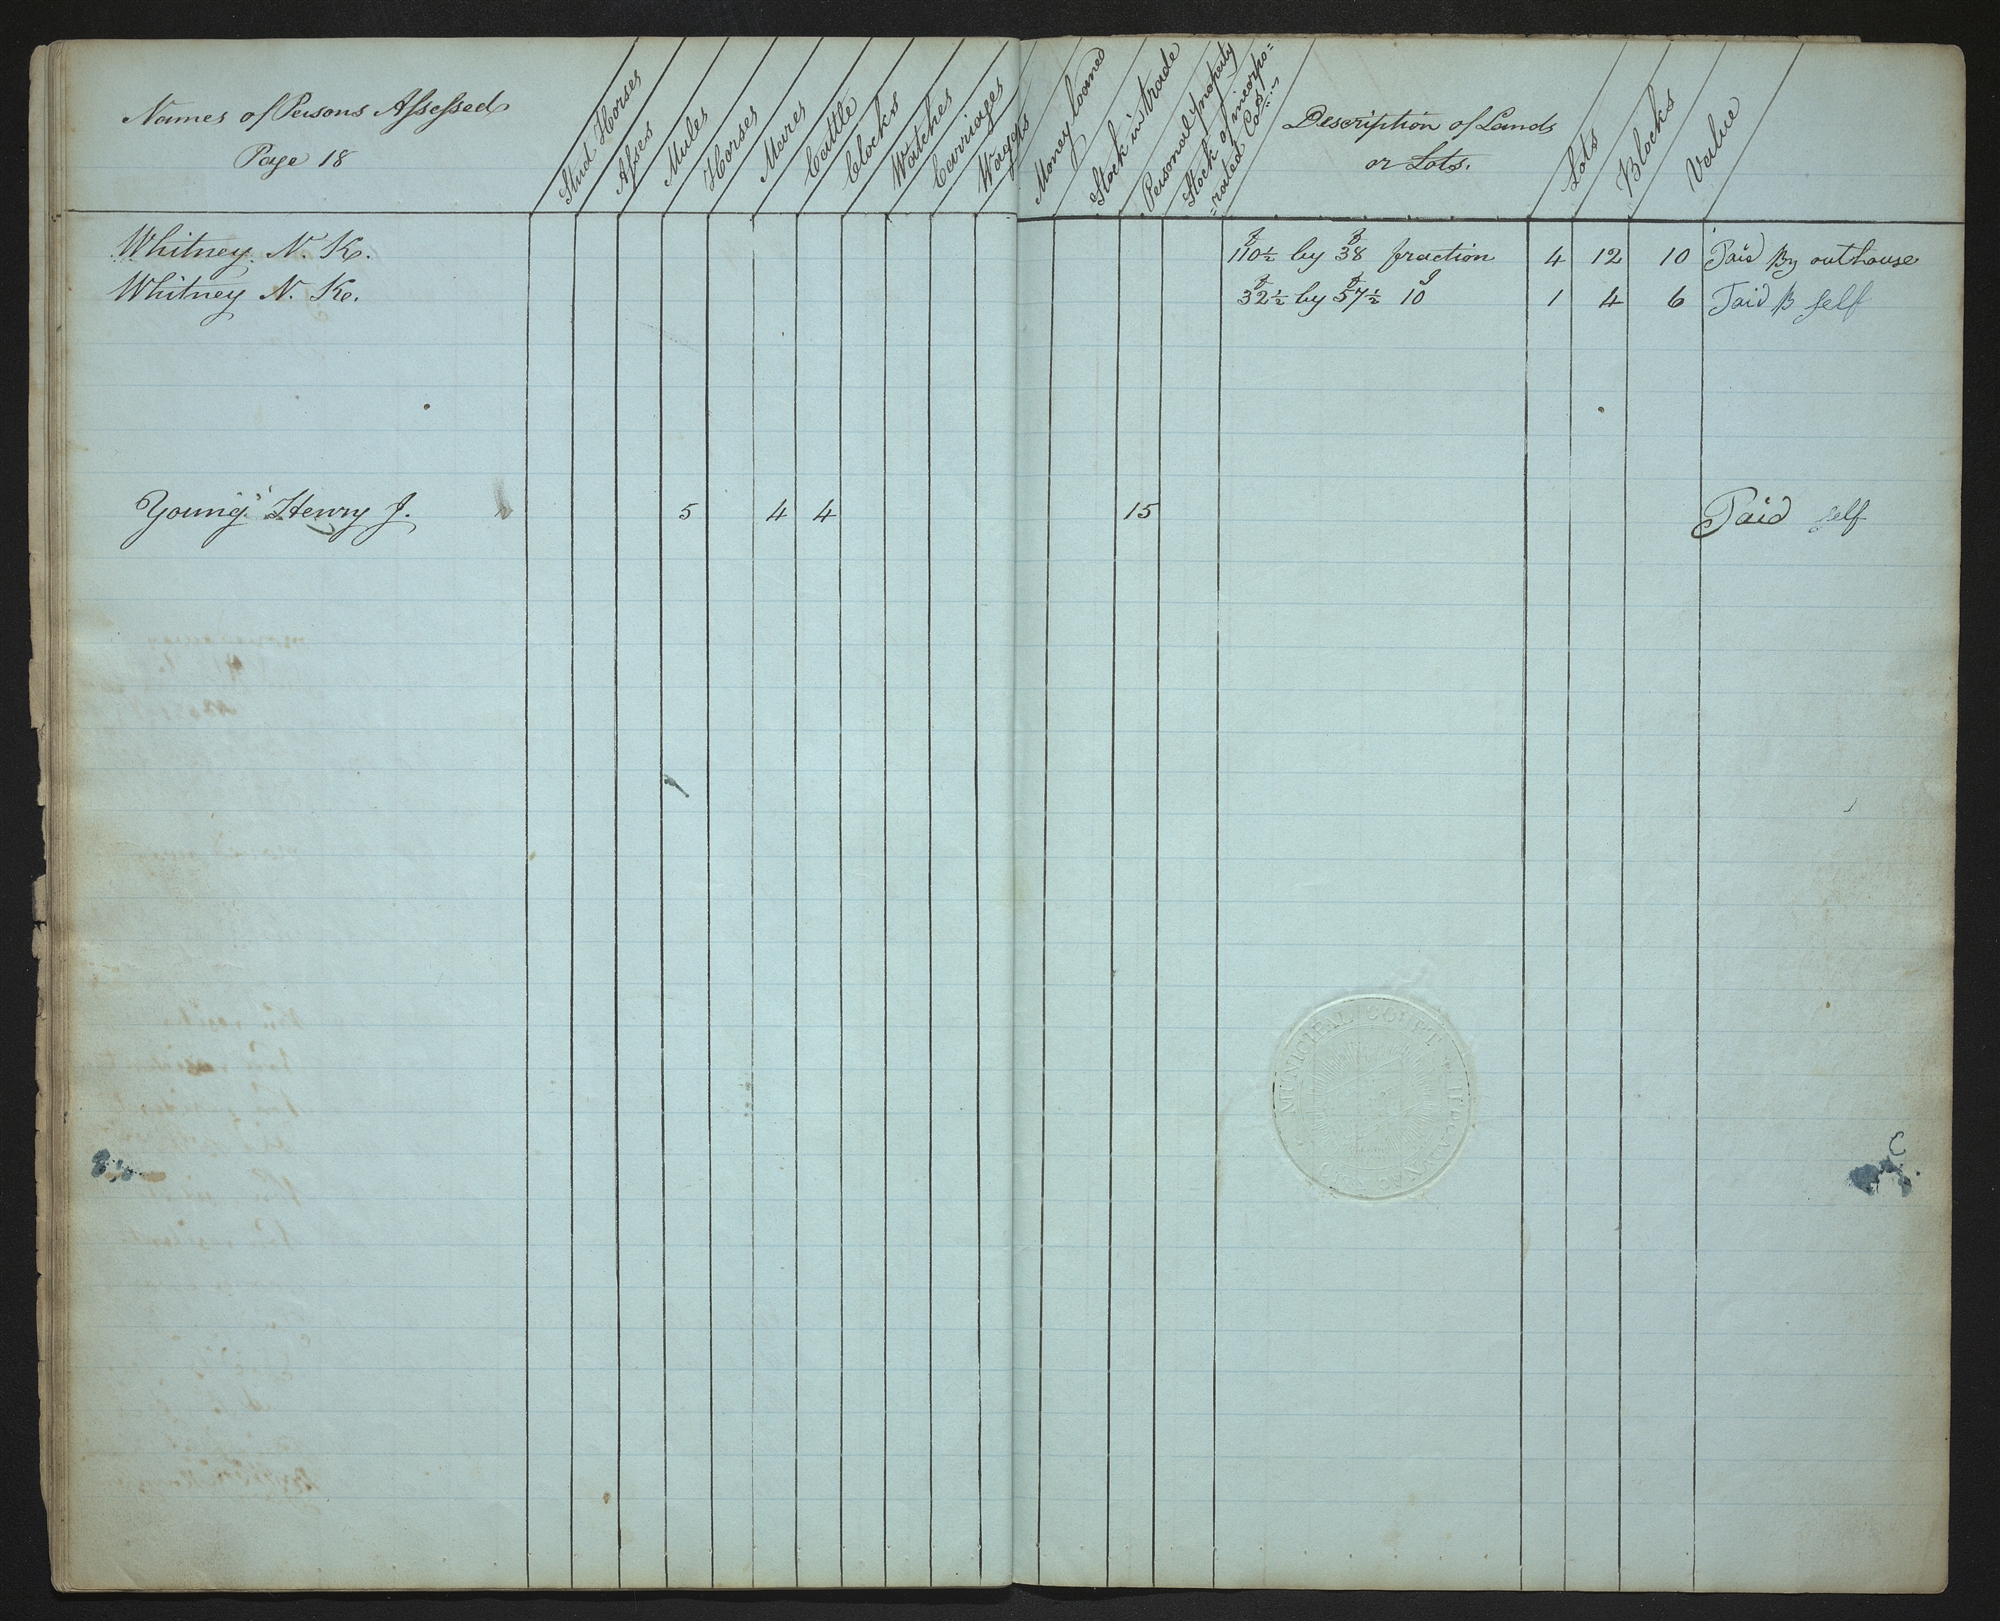 Names of Persons Assessed
Page 18
Stud Horses
Asses
Mules
Horses
Mares
Cattle
Clocks
Watches
Carriages
Wagons
Money loaned
Stock in trade
Personal property
Stock of incorpo=
=rated Cos
Description of Lands
or Lots.
Lots
Blocks
Value
Whitney N. K. 110½ by 38 fraction 4 12 10 Paid By outhouse
Whitney N. K. 32½ by 57½ 10 1 4 6 Paid B self
Young Henry J. 5 4 4 15 Paid self
MUNICIPAL COURT
C